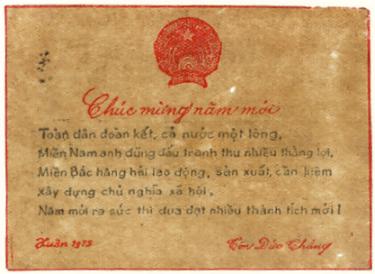 Chúc mừng năm mới
Toàn dân đoàn kết, cả nước một lòng,
Miền Nam anh dũng đấu tranh thu nhiều thắng lợi,
Miền Bắc hăng hái lao động, sản xuất, cần kiệm
xây dựng chủ nghĩa xã hội,
Năm mới ra sức thi đua đạt nhiều thành tích mới!
Xuân 1975
Tôn Đức Thắng